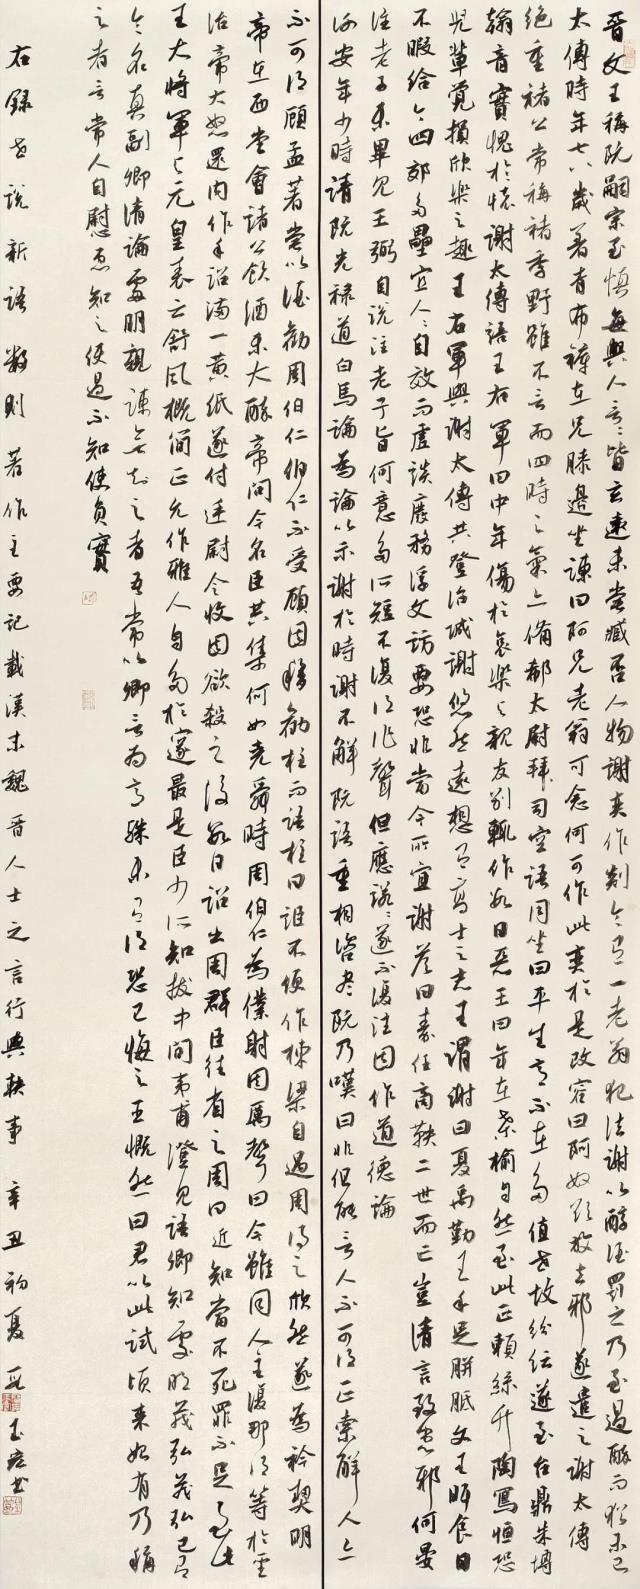 晋文王稱阮嗣宗至慎每與人言言皆玄遠未嘗臧否人物謝奕作剡令有一老翁犯法謝以醇酒罰之乃至過醉而猶未已
太傅時年七八歲著青布袴在兄膝邊坐諫曰阿兄老翁可念何可作此奕於是改容曰阿奴欲放去邪遂遣之謝太傅
絕重褚公常稱褚季野雖不言而四時之氣亦備郗太尉拜司空語同坐曰平生意不在多值世故紛紜遂至台鼎朱博
翰音實愧於懷謝太傅語王右軍曰中年傷於哀樂與親友别輒作數日惡王曰年在桑榆自然至此正賴絲竹陶寫恒恐
兒輩覺損欣樂之趣王右軍與謝太傅共登冶城謝悠然遠想有高士之志王謂謝曰夏禹勤王手足胼胝文王旰食日
不暇給今四郊多壘宜人人自效而虚談廢務浮文妨要恐非當今所宜謝答曰秦任商鞅二世而亡豈清言致患邪何晏
注老子未畢見王弼自說注老子旨何意多所短不復得作聲但應諾諾遂不復注因作道德論
謝安年少時請阮光禄道白馬論為論以示謝於時謝不解阮語重相咨盡阮乃嘆曰非但能言人不可得正索解人亦
不可得顧孟著嘗以酒勸周伯仁伯仁不受顧因移勸柱而語柱曰詎可便作棟梁自遇周得之欣然遂為衿契明
帝在西堂會諸公飲酒未大醉帝問今名臣共集何如堯舜時周伯仁為僕射因厲聲曰今雖同人主復那得等於聖
治帝大怒還内作手詔滿一黄紙遂付廷尉令收因欲殺之後數日詔出周群臣往省之周曰近知當不死罪不足至此
王大將軍與元皇表云舒風概簡正允作雅人自多於邃最是臣少所知拔中間夷甫澄見語卿知處明茂弘茂弘已有
令名真副卿清論處明親疎無知之者吾常以卿言為意殊未有得恐已悔之王慨然曰君以此試頃來始有乃稱
之者言常人自患知之使過不知使負實
右録世說新語數則 著作主要記載漢末魏晋人士之言行與軼事 辛丑初夏 玉書